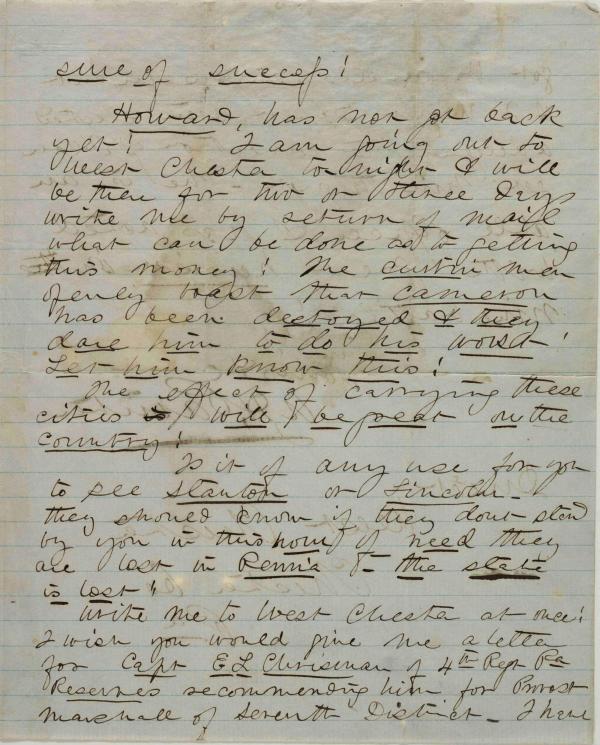 sure of success!
Howard, has not got back
yet! I am going out to
West Chester to night & will
be then for two or three days
write me by return of mail
what can be done as to getting
this money! The curtin men
openly boast that Cameron
has been destroyed & they
dare him to do his worst!
Let him know this!
The effect of carrying these
cities is will be great on the
country!
Is it of any use for you
to see Stanton or Lincoln_
they should know if they dont stand
by you in this hour of need they
are lost in Penna & the state
is lost!
Write me to West Chester at once!
I wish you would give me a letter
for Capt E L Chrisman of 4th Regt Pa
Reserves recommending him for Provost
Marshall of Seventh District_ I have